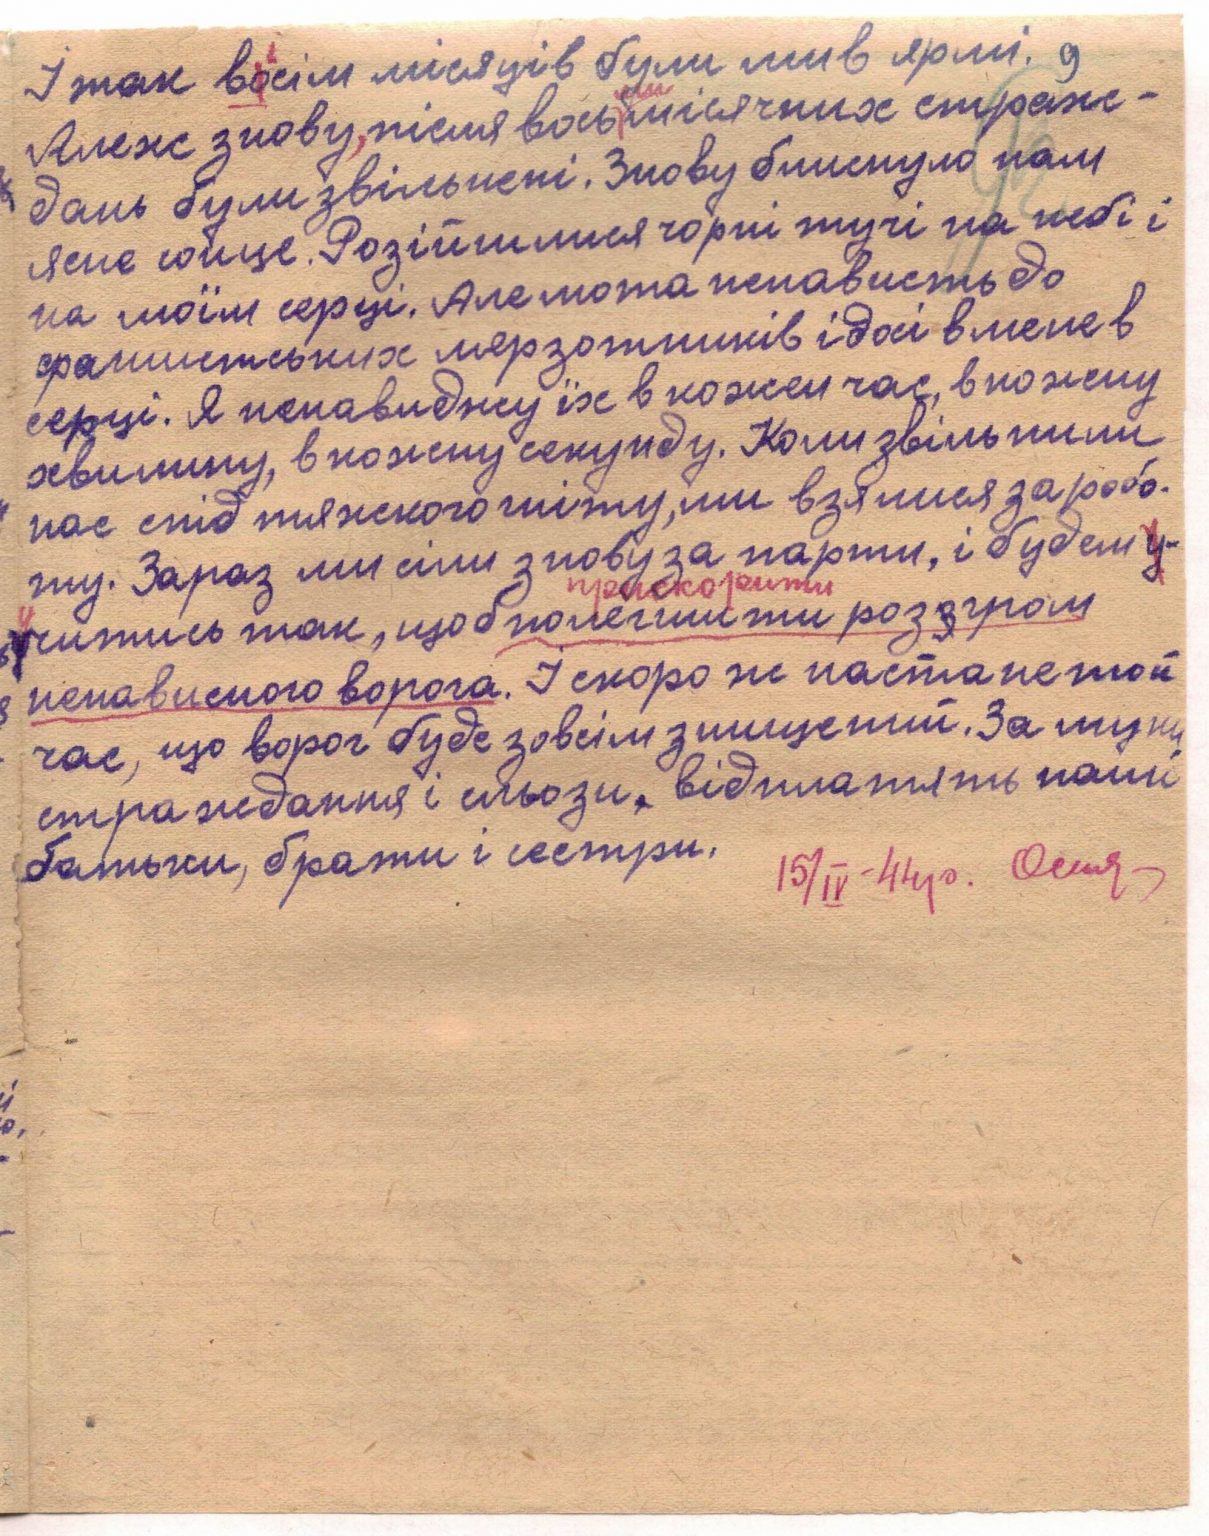 І так восім місяців були ми в ярмі. 9
Алеж знову, після восьмимісячних страж-
дань були звільнені. Знову блиснуло нам
ясне сонце. Розійшлися чорні тучі на небі і
на моїм серці. Але люта ненависть до
фашистських мерзотників і досі в мене в
серці. Я ненавиджу їх в кожен час, в кожну
хвилину, в кожну секунду. Коли звільнили
нас спід тяжкого гніту, ми взялися за робо-
ту. Зараз ми сіли знову за парти, і будем у-
прискорити
читись так, щоб полегшити розгром
ненависного ворога. І скоро ж настане той
час, що ворог буде зовсім знищений. За муки
страждання і сльози, відплатять наші
батьки, брати і сестри.
15/IV-44р.